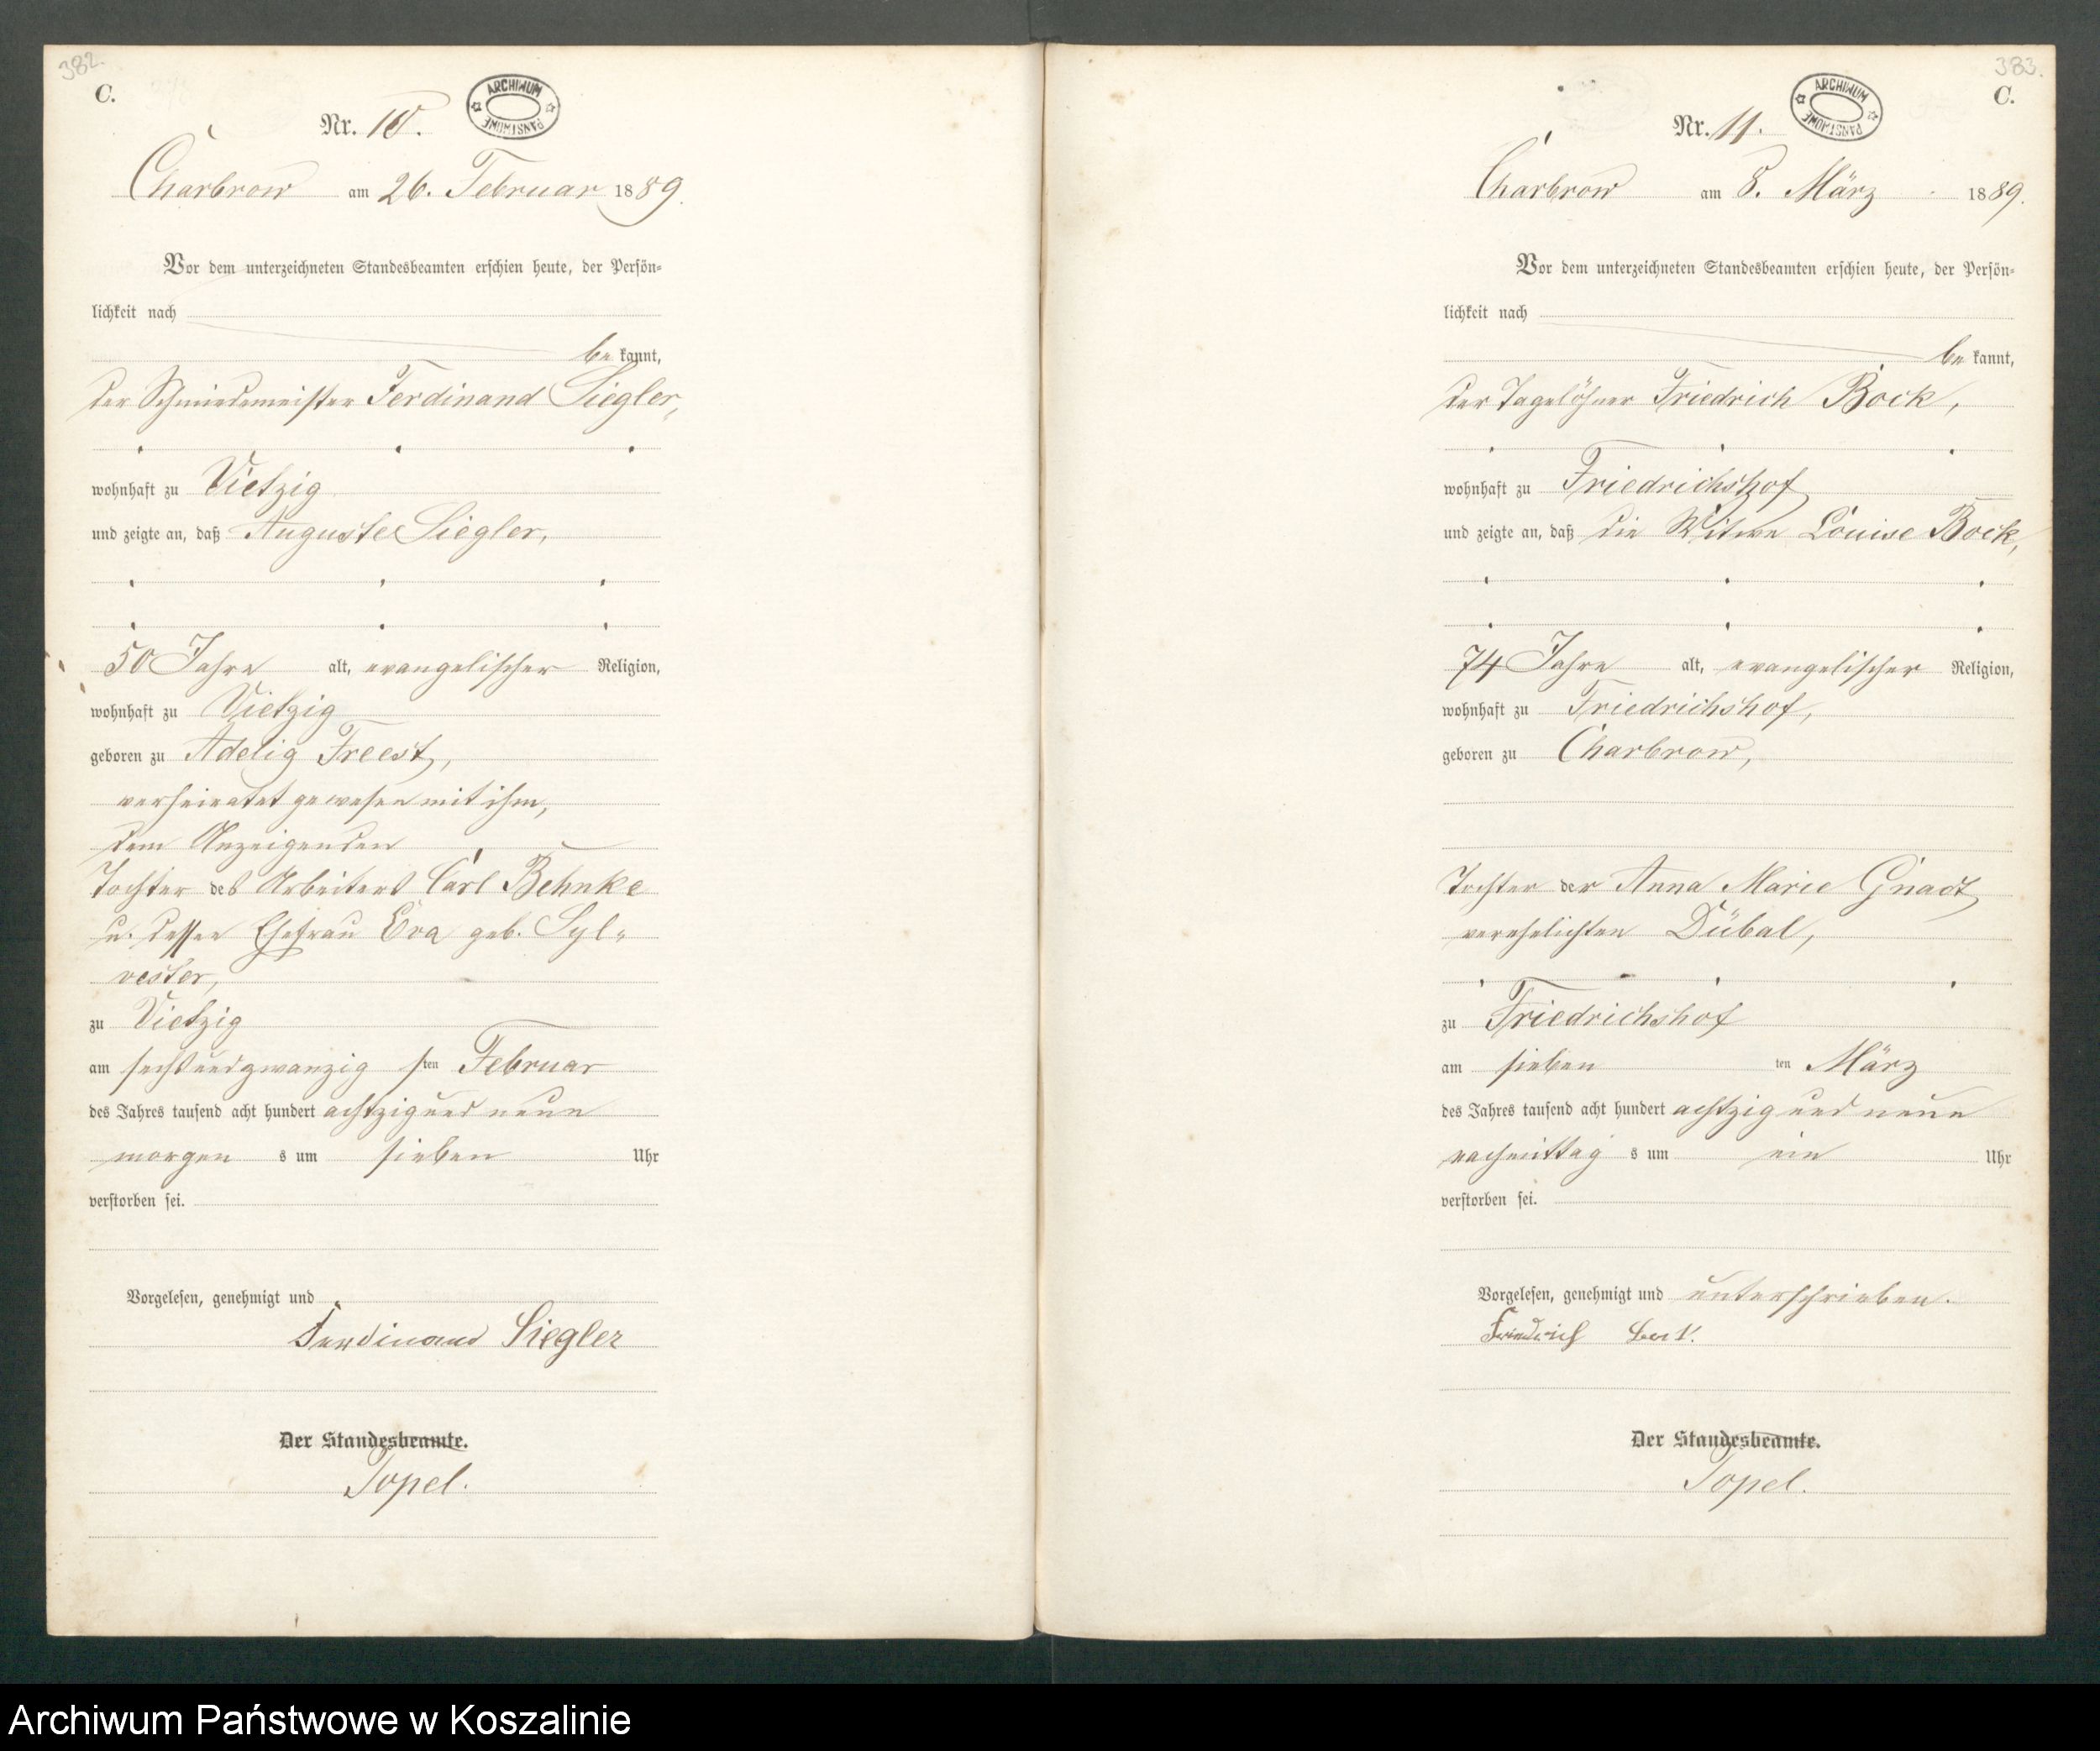 382.
C.
ARCHIWUM PAŃSTWOWE
Nr. 10.
Charbrow am 26. Februar 1889.
Vor dem unterzeichneten Standesbeamten erschien heute, der Persön-
lichkeit nach
be kannt,
der Schmiedemeister Ferdinand Siegler,
wohnhaft zu Vietzig
und zeigte an, daß Auguste Siegler,
50 Jahre alt, evangelischer Religion,
wohnhaft zu Vietzig
geboren zu Adelig Freest,
verheiratet gewesen mit ihm,
dem Anzeigenden
Tochter des Arbeiters Carl Behnke
u. dessen Ehefrau Eva geb. Syl-
vester,
zu Vietzig
am sechsundzwanzig sten Februar
des Jahres tausend acht hundert achtzig und neun
morgen s um sieben Uhr
verstorben sei.
Vorgelesen, genehmigt und
Ferdinand Siegler
Der Standesbeamte.
Topel.
383.
C.
ARCHIWUM PAŃSTWOWE
Nr. 11.
Charbrow am 8. März 1889.
Vor dem unterzeichneten Standesbeamten erschien heute, der Persön-
lichkeit nach
be kannt,
der Tagelöhner Friedrich Bock,
wohnhaft zu Friedrichshof
und zeigte an, daß die Witwe Louise Bock,
74 Jahre alt, evangelischer Religion,
wohnhaft zu Friedrichshof,
geboren zu Charbrow,
Tochter der Anna Marie Gnadt
verehelichten Dübal,
zu Friedrichshof
am sieben ten März
des Jahres tausend acht hundert achtzig und neun
nachmittag s um ein Uhr
verstorben sei.
Vorgelesen, genehmigt und unterschrieben.
Friedrich Bock.
Der Standesbeamte.
Topel.
Archiwum Państwowe w Koszalinie